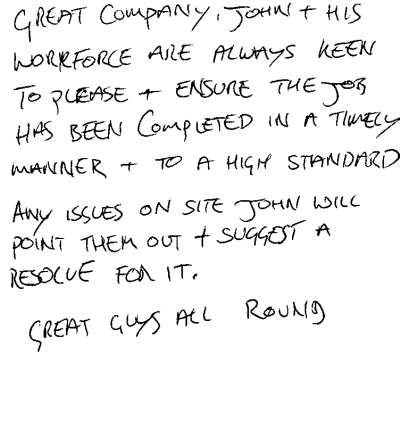 GREAT COMPANY, JOHN + HIS
WORKFORCE ARE ALWAYS KEEN
TO PLEASE + ENSURE THE JOB
HAS BEEN COMPLETED IN A TIMELY
MANNER + TO A HIGH STANDARD
ANY ISSUES ON SITE JOHN WILL
POINT THEM OUT + SUGGEST A
RESOLVE FOR IT.
GREAT GUYS ALL ROUND